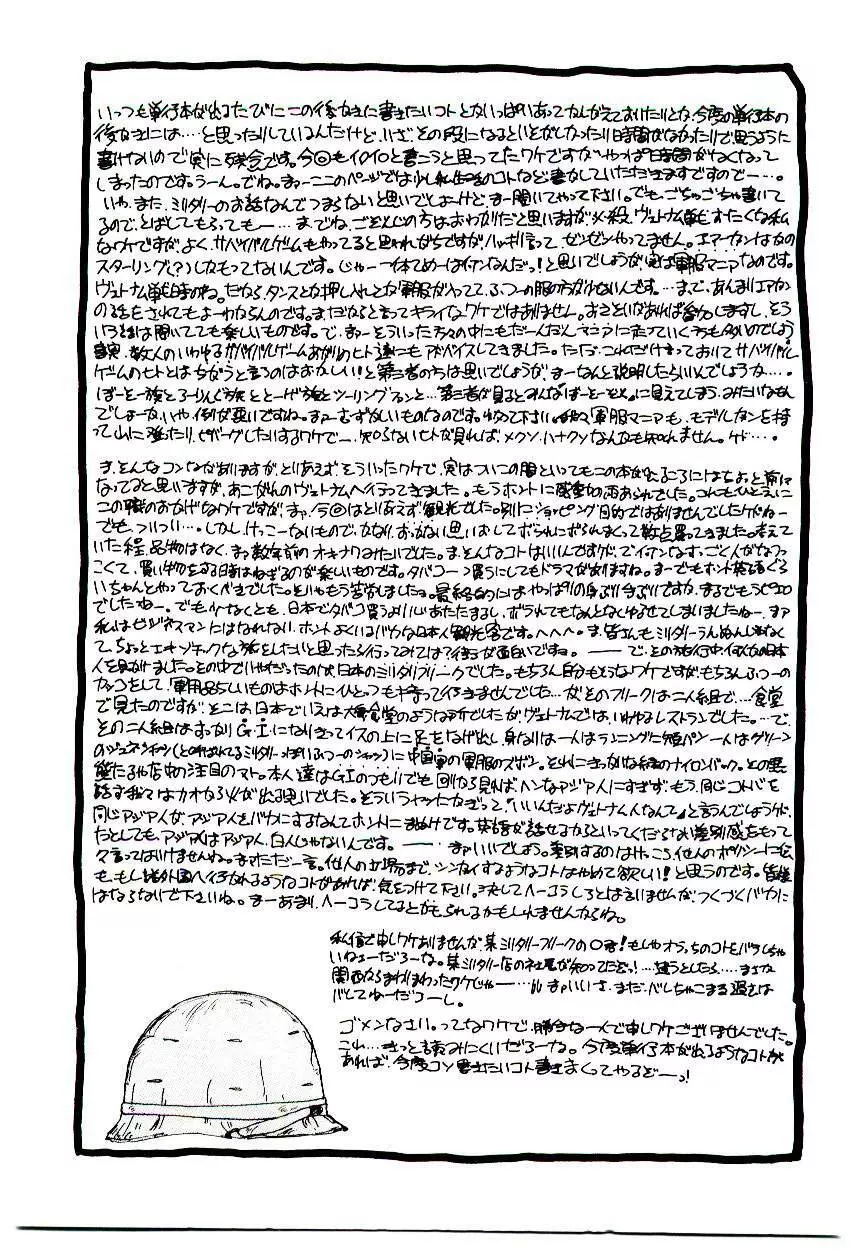 いっつも単行本が出るたびにこの後がきに書きたいコトとかいっぱいあって 今度の単行本の
後がきには……と思ったりしているんだけど、いざその段になるといそがしかったり時間がなかったりで思うように
書けないので実に残念です。今回もイロイロと書こうと思ってたワケですがやっぱ時間がなくなって
しまったのです。うーん。でね。まぁーここのページでは少し のコトなど書かしていただきますですので—…。
いや、また、ミリタリーのお話なんでつまらないと思いでしょーけど、まー聞いてやって下さい。でもごちゃごちゃ書いて
るので、とばしてもらっても—… までね、ごぞんじの方はおわかりだと思いますが ヴェトナム戦 な私
なワケですが、よく、サバイバルゲームもやってると思われがちですが、ハッキリ言って、ゼンゼンやってません。エアーガンはかの
スターリング(?)しかもってないんです。じゃー一体てめーはナンなんだっ!と思いでしょうが、実は軍服マニアなのです。
ヴェトナム戦時のね。だから、タンスとか押し入れとか軍服が ふつーの服の方が少ないんです。…まで、あんまりエアガン
の話をされてもよーわからんのです。まだだからと言ってキライなワケではありません。 そう
いう話は聞いてても楽しいものです。で、まぁーそういった方々の中にもだーんだんマニアに走っていく方も多いのでしょう
事実、数人のいわゆるサバイバルゲームあがりのヒト達にもアドバイスしてきました。ただ、これだけ言っておいてサバイバル
ゲームのヒトとはちがうと言うのはおかしい!と第三者の方は思いでしょうが、まーなんと説明したらいいんでしょうか…。
ぼーそー族とろーりんぐ族ととーげ族とツーリングランと…第三者が見るとみんなぼーそー に見えてしまう、みたいなもん
でしょーか、いや、例が悪いですね。まぁーむずかしいものなのです。 下さい。 軍服マニアも、モデルガンを持
って山に登ったり、ビバークしたりするワケで—、知らないヒトが見れば、メクソ、ハナクソなんかも知れません。ケド…。
ま、そんなコンなかありますが、とりあえずそういったワケで、実はついこの間といってもこの本が出るころにはちょっと前に
なってると思いますが、あこがれのヴェトナムへ行ってきました。もうホントに感動の雨あられでした。これもひとえに
この職のおかげなワケですが、まぁ、今回はとりあえず観光でした。別にショッピング目的ではありませんでしたけどねー
でも、ついつい…。しかし、けっこーないもので、かなり、おっかない思いおしてボられにボられまくって数点買ってきました。考えて
いた程、品物はなく、まぁ数年前のオキナワみたいでした。ま、そんなコトはいいんですけど、 すっごく人がなつ
こくて、買い物をする時はねぎるのが楽しいものです。タバコ一つ買うにしてもドラマがありますね。まーでもホント英語ぐら
いちゃんとやっておくべきでした。そりゃもう苦労しました。最終的にはやっぱり身ぶり手ぶりですか、まるでもうピエロ
でしたねー。でも少なくとも、日本でタバコ買うより心あたたまるし、ボられてもなんとなくゆるせてしまいましたねー、まぁ
私はビジネスマンにはなれない、ホントよくいるバカな日本人観光客です。へへへ。ま、皆さんもミリタリーうんぬんじゃなく
て、ちょっとエキゾチックな旅をしたいと思ったら行ってみてはずい分面白いですね。——で、その旅行中、 日本
人を見かけました。その中で は、日本のミリタリフリークでした。もちろん自分もそうなワケですが、もちろんふつーの
カッコをして「軍用品らしいものはホントにひとつも持って行きませんでした…がそのフリークは二人組で…食堂
で見たのですが、そこは日本でいえば大衆食堂のような所でしたが、ヴェトナムでは、いわゆるレストランでした。…で、
その二人組はすっかりG.Iになりきってイスの上に足をなげ出し、身なりは一人はランニングに短パン一人はグリーン
のジャングルシャツ(と呼ばれてるミリタリーっぽいふつーのシャツ)に中国軍の軍服のズボン。それに のナイロンバック。との黒
店中の注目のマト。本人達はG.Iのつもりでも回りから見ればヘンなアジア人にすぎず、もう、同じコトバを
話す我々はカオから火が出る思いでした。そういうヤツにかぎって「いいんだよヴェトナム人なんて」と言うんでしょうけど、
同じアジア人が、アジア人をバカにするなんてホントにまぬけです。英語が話せるからといってくだらない差別感をもって
たとしても、アジア人はアジア人、白人じゃないんです。——まぁいいでしょう。差別するのはけっこう、他人のポリシーに
々言ってはいけませんね。まぁただ一言。他人の立場まで、シンガイするようなコトはやめて欲しい!と思うのです。皆様
も、もし 外国へ行かれるようなコトがあれば、気をつけて下さい。決してヘーコラしろとは言いませんが、つくづくバカに
はならないで下さいね。まーあまり、ヘーコラしてるとかもられるかもしれませんからね。
私信で申しワケありませんが、某ミリタリーフリークの〇君!もしやオラっちのコトをバラしちゃ
いねェーだろーな。某ミリタリー店の社長が知ってたぞっ!…違うとしたら……まさか
関西からまわりまわったワケじゃー……まァいいさ、まだ、バレちゃこまる過去は
バレてねーだろーし。
ゴメンなさい。ってなワケで、勝手な一人で申しワケございませんでした。
これ…きっと読みにくいだろーな。今度単行本が出るようなコトが
あれば、今度コソ書きたいコト書きまくってやるぞーっ!